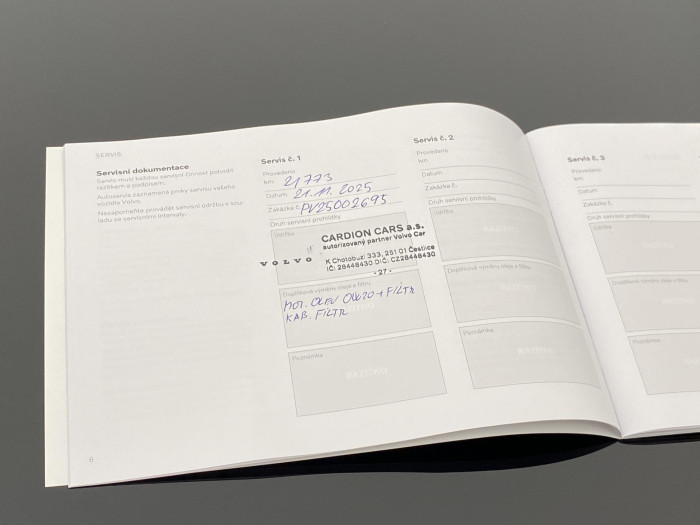 SERVIS
Servisní dokumentace
Servis musí každou servisní činnost potvrdit
razítkem a podpisem.
Autoservis zaznamená prvky servisu vašeho
vozidla Volvo.
Nezapomeňte provádět servisní údržbu v sou-
ladu se servisními intervaly.
6
Servis č. 1
Provedeno
km 21 773
Datum 21. 11. 2025
Zakázka č. PV25002695
Druh servisní prohlídky
Údržba
VOLVO
CARDION CARS a.s.
autorizovaný partner Volvo Car
K Chotobuzi 333, 251 01 Čestlice
IČ: 28448430 DIČ: CZ28448430
- 27 -
Doplňkové výměny oleje a filtru
MOT. OLEJ 0W20 + FILTR
KAB. FILTR
Poznámka
RAZÍTKO
Servis č. 2
Provedeno
km
Datum
Zakázka č.
Druh servisní prohlídky
Údržba
Doplňkové výměny oleje a filtru
Poznámka
Servis č. 3
Provedeno
km
Datum
Zakázka č.
Druh servisní prohlídky
Údržba
Doplňkové výměny oleje a filtru
Poznámka